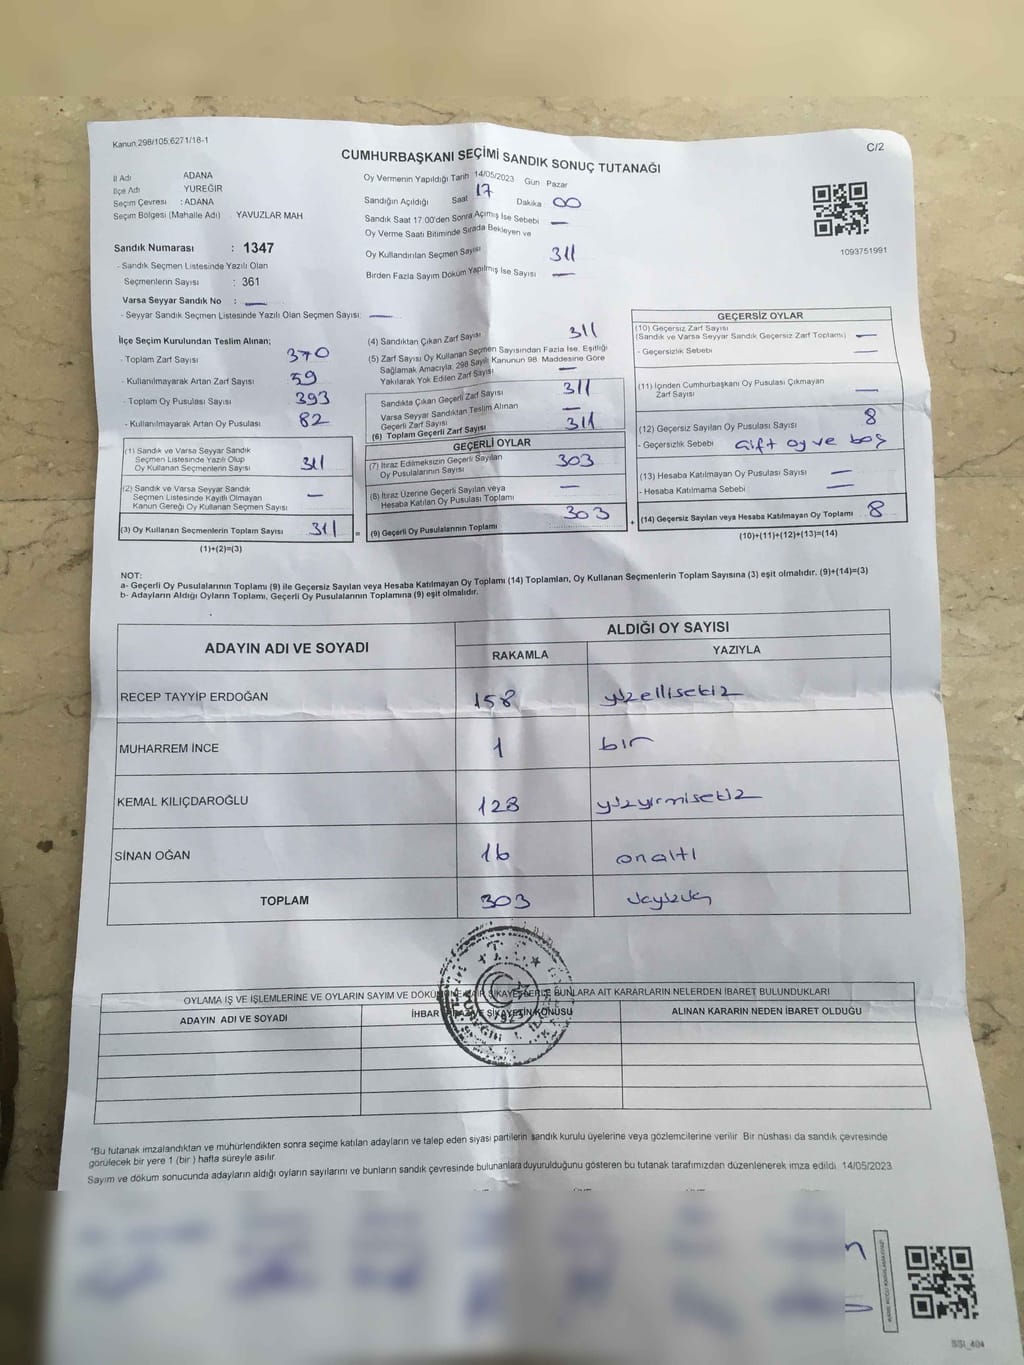 Kanun:298/105;6271/16-1
C/2
CUMHURBAŞKANI SEÇİMİ SANDIK SONUÇ TUTANAĞI
İl Adı ADANA
İlçe Adı YÜREĞİR
Seçim Çevresi : ADANA
Seçim Bölgesi (Mahalle Adı) YAVUZLAR MAH
Sandık Numarası : 1347
- Sandık Seçmen Listesinde Yazılı Olan
Seçmenlerin Sayısı : 361
Varsa Seyyar Sandık No : —
- Seyyar Sandık Seçmen Listesinde Yazılı Olan Seçmen Sayısı: —
Oy Vermenin Yapıldığı Tarih 14/05/2023 Gün Pazar
Sandığın Açıldığı Saat 17 Dakika 00
Sandık Saat 17:00'den Sonra Açılmış İse Sebebi —
Oy Verme Saati Bitiminde Sırada Bekleyen ve
Oy Kullandırılan Seçmen Sayısı 311
Birden Fazla Sayım Döküm Yapılmış İse Sayısı —
1093751991
İlçe Seçim Kurulundan Teslim Alınan;
- Toplam Zarf Sayısı 370
- Kullanılmayarak Artan Zarf Sayısı 59
- Toplam Oy Pusulası Sayısı 393
- Kullanılmayarak Artan Oy Pusulası 82
(1) Sandık ve Varsa Seyyar Sandık
Seçmen Listesinde Yazılı Olup
Oy Kullanan Seçmenlerin Sayısı 311
(2) Sandık ve Varsa Seyyar Sandık
Seçmen Listesinde Kayıtlı Olmayan
Kanun Gereği Oy Kullanan Seçmen Sayısı —
(3) Oy Kullanan Seçmenlerin Toplam Sayısı 311 =
(1)+(2)=(3)
(4) Sandıktan Çıkan Zarf Sayısı 311
(5) Zarf Sayısı Oy Kullanan Seçmen Sayısından Fazla İse, Eşitliği
Sağlamak Amacıyla; 298 Sayılı Kanunun 98. Maddesine Göre
Yakılarak Yok Edilen Zarf Sayısı —
Sandıkta Çıkan Geçerli Zarf Sayısı 311
Varsa Seyyar Sandıktan Teslim Alınan
Geçerli Zarf Sayısı —
(6) Toplam Geçerli Zarf Sayısı 311
GEÇERLİ OYLAR
(7) İtiraz Edilmeksizin Geçerli Sayılan
Oy Pusulalarının Sayısı 303
(8) İtiraz Üzerine Geçerli Sayılan veya
Hesaba Katılan Oy Pusulası Toplamı —
(9) Geçerli Oy Pusulalarının Toplamı 303 +
GEÇERSİZ OYLAR
(10) Geçersiz Zarf Sayısı
(Sandık ve Varsa Seyyar Sandık Geçersiz Zarf Toplamı) —
- Geçersizlik Sebebi —
(11) İçinden Cumhurbaşkanı Oy Pusulası Çıkmayan
Zarf Sayısı —
(12) Geçersiz Sayılan Oy Pusulası Sayısı 8
- Geçersizlik Sebebi Çift oy ve boş
(13) Hesaba Katılmayan Oy Pusulası Sayısı —
- Hesaba Katılmama Sebebi —
(14) Geçersiz Sayılan veya Hesaba Katılmayan Oy Toplamı 8
(10)+(11)+(12)+(13)=(14)
NOT:
a- Geçerli Oy Pusulalarının Toplamı (9) ile Geçersiz Sayılan veya Hesaba Katılmayan Oy Toplamı (14) Toplamları, Oy Kullanan Seçmenlerin Toplam Sayısına (3) eşit olmalıdır. (9)+(14)=(3)
b- Adayların Aldığı Oyların Toplamı, Geçerli Oy Pusulalarının Toplamına (9) eşit olmalıdır.
ADAYIN ADI VE SOYADI ALDIĞI OY SAYISI
RAKAMLA YAZIYLA
RECEP TAYYİP ERDOĞAN 158 yüzellisekiz
MUHARREM İNCE 1 bir
KEMAL KILIÇDAROĞLU 128 yüzyirmisekiz
SİNAN OĞAN 16 onaltı
TOPLAM 303 üçyüzüç
OYLAMA İŞ VE İŞLEMLERİNE VE OYLARIN SAYIM VE DÖKÜMÜNE DAİR ŞİKAYETLERLE BUNLARA AİT KARARLARIN NELERDEN İBARET BULUNDUKLARI
ADAYIN ADI VE SOYADI İHBAR İTİRAZ VE ŞİKAYETİN KONUSU ALINAN KARARIN NEDEN İBARET OLDUĞU
*Bu tutanak imzalandıktan ve mühürlendikten sonra seçime katılan adayların ve talep eden siyasi partilerin sandık kurulu üyelerine veya gözlemcilerine verilir. Bir nüshası da sandık çevresinde
görülecek bir yere 1 (bir) hafta süreyle asılır.
Sayım ve döküm sonucunda adayların aldığı oyların sayılarını ve bunların sandık çevresinde bulunanlara duyurulduğunu gösteren bu tutanak tarafımızdan düzenlenerek imza edildi. 14/05/2023